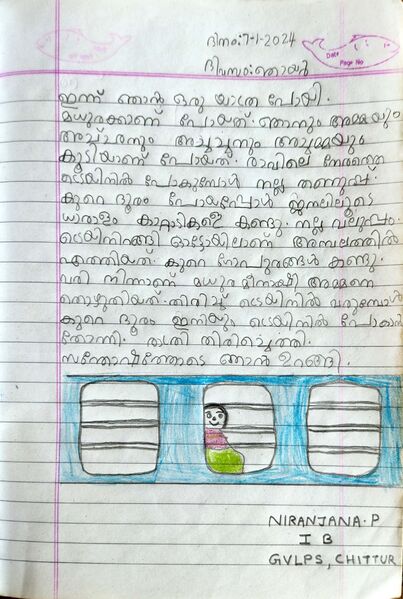 ദിനം:7-1-2024
ദിവസം:ഞായർ
Date
Page No
ഇന്ന് ഞാൻ ഒരു യാത്ര പോയി.
മധുരക്കാണ് പോയത്. ഞാനും അമ്മയും
അച്ഛനും അച്ചച്ചനും അച്ചമ്മയും
കൂടിയാണ് പോയത്. രാവിലെ നേരത്തെ
ട്രെയിനിൽ പോകുമ്പോൾ നല്ല തണുപ്പ്.
കുറെ ദൂരം പോയപ്പോൾ ജനലിലൂടെ
ധാരാളം കാറ്റാടികളെ കണ്ടു. നല്ല വലുപ്പം.
ട്രെയിനിറങ്ങി ഓട്ടോയിലാണ് അമ്പലത്തിൽ
എത്തിയത്. കുറെ ഗോപുരങ്ങൾ കണ്ടു.
വരി നിന്നാണ് മധുര മീനാക്ഷി അമ്മനെ
തൊഴുതിയത്. തിരിച്ച് ട്രെയിനിൽ വരുമ്പോൾ
കുറെ ദൂരം ഇനിയും ട്രെയിനിൽ പോകാൻ
തോന്നി. രാത്രി തിരിച്ചെത്തി.
സന്തോഷത്തോടെ ഞാൻ ഉറങ്ങി.
NIRANJANA.P
I B
GVLPS, CHITTUR